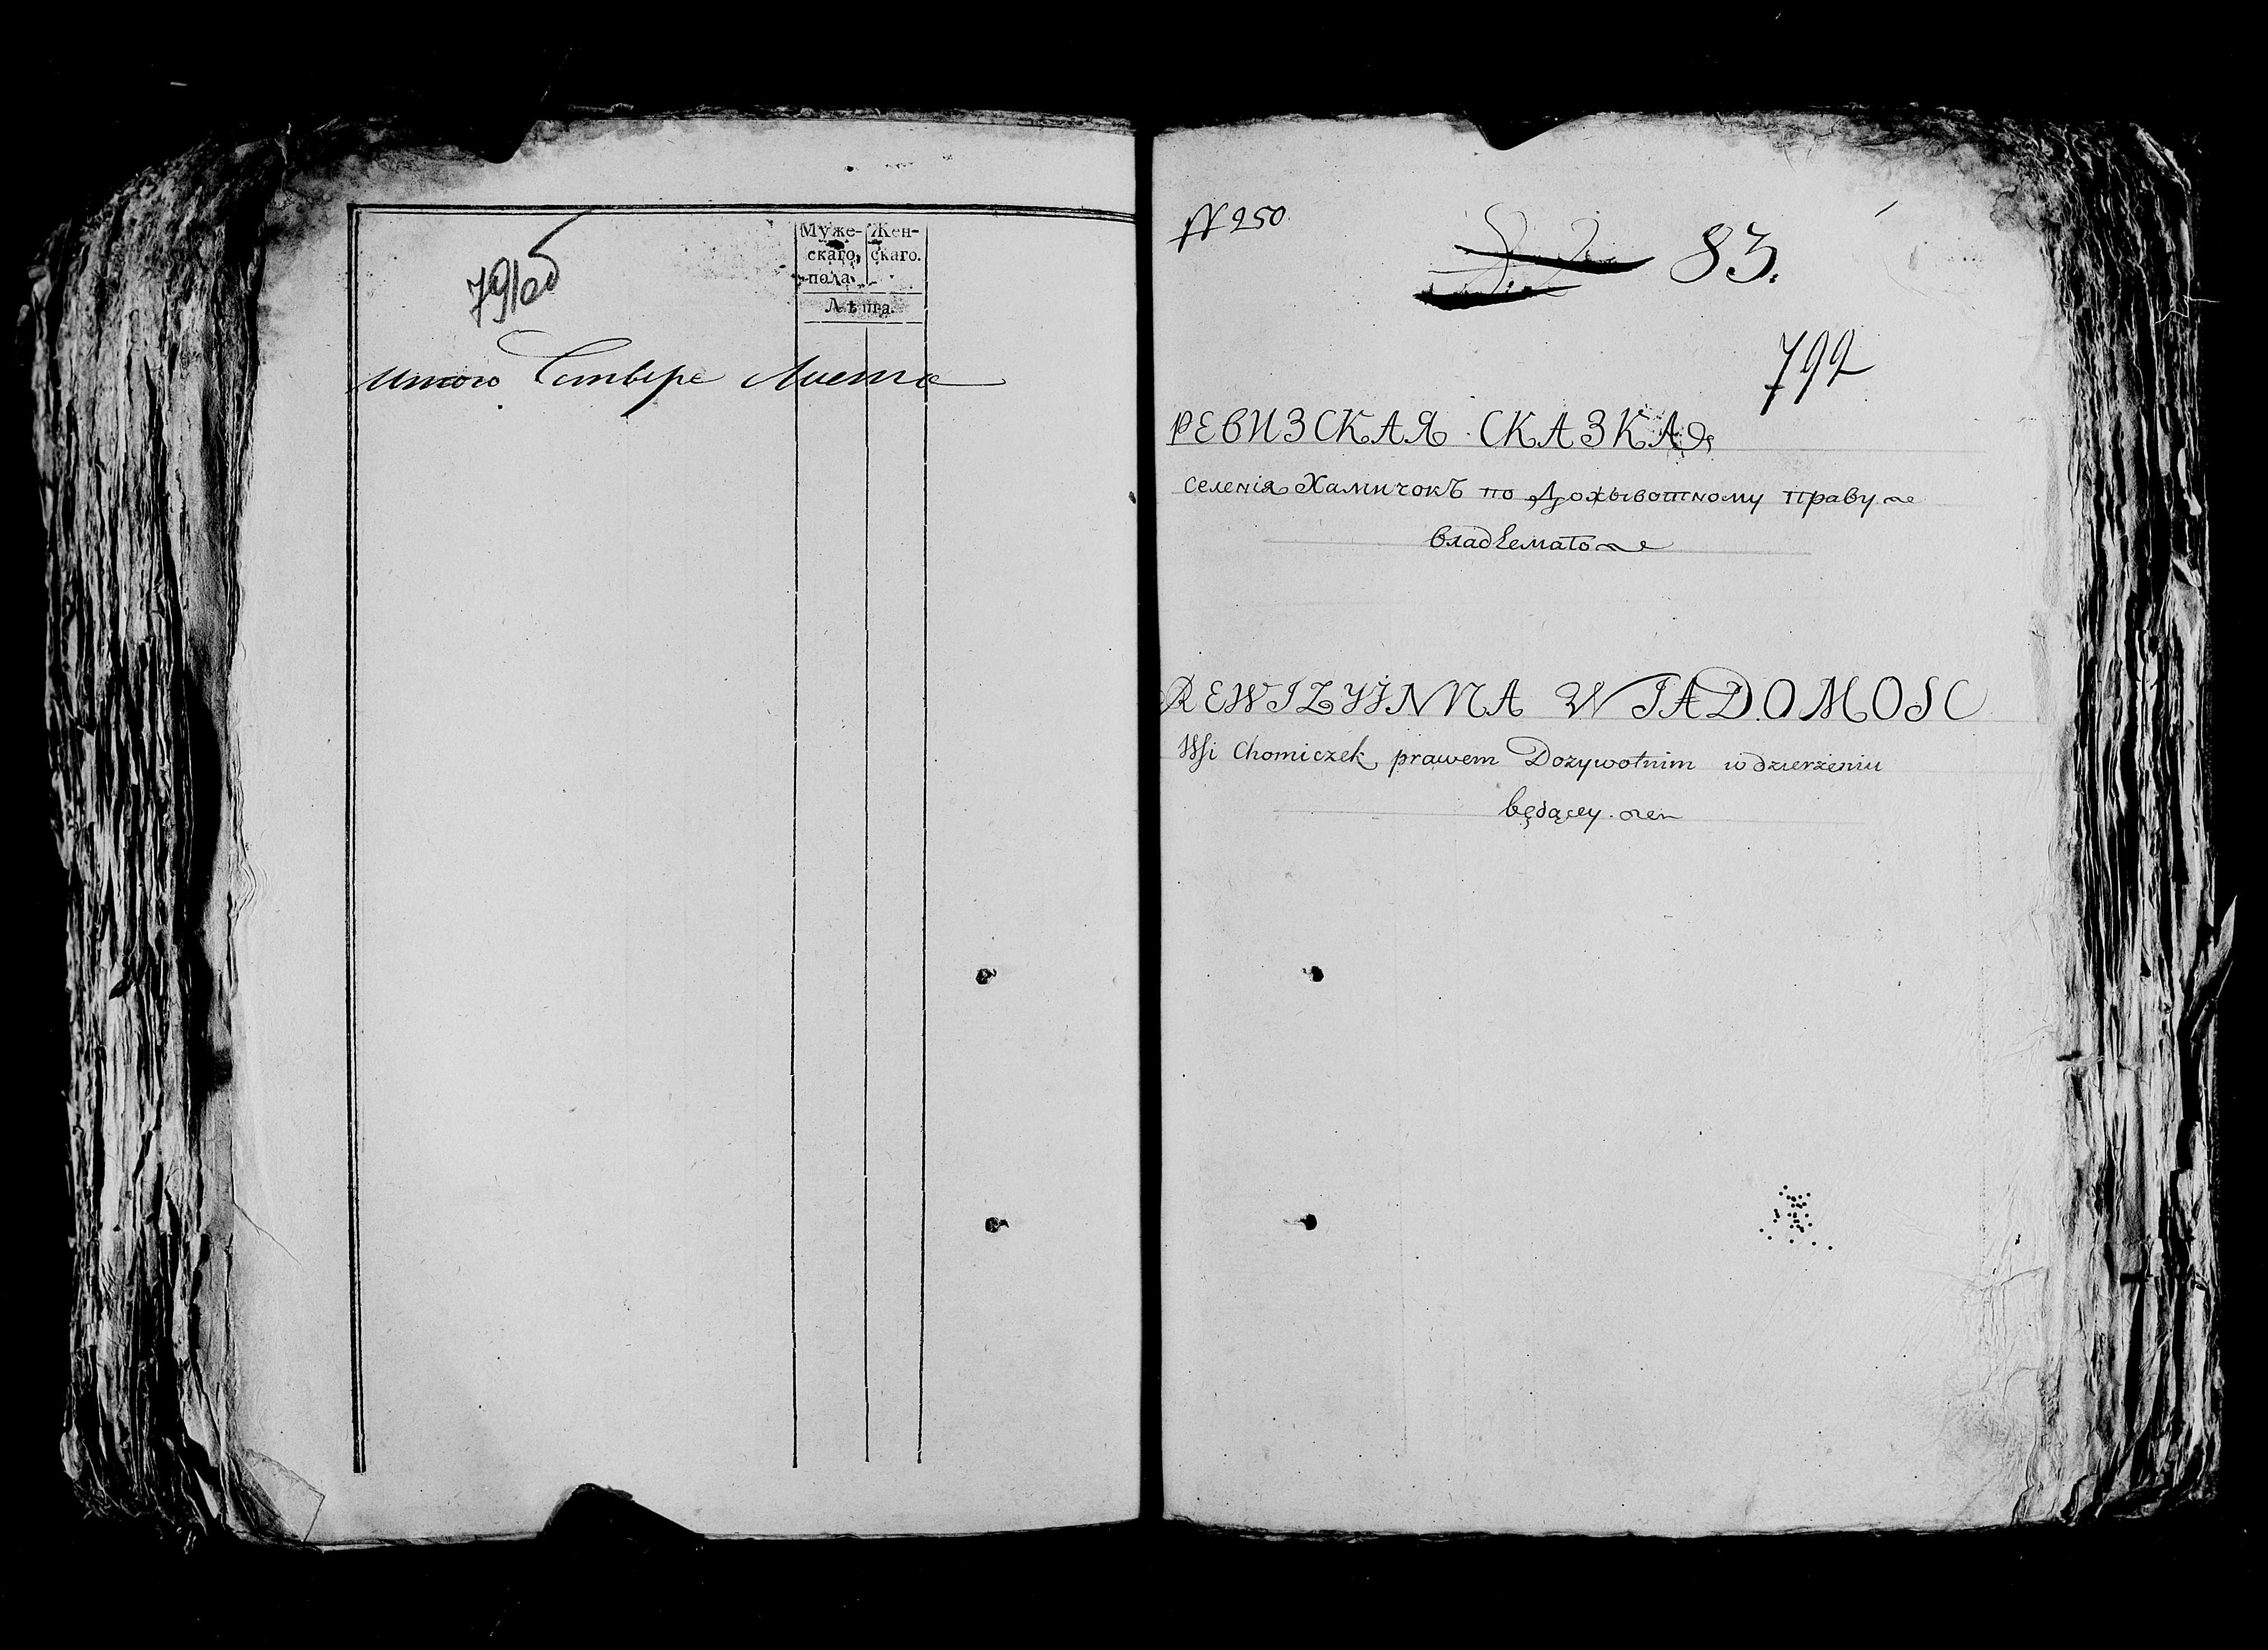 791об
Муже-
скаго
пола.
Жен-
скаго.
Лѣта.
итого Четыре Листа
№ 250.
83.
792
РЕВИЗСКАЯ СКАЗКА
селенія Хамичокъ по Дожывотному праву
владѣемаго
REWIZYJNNA WIADOMOSC
Wsi Chomiczek prawem Dozywotnim w dzierżeniu
będącey